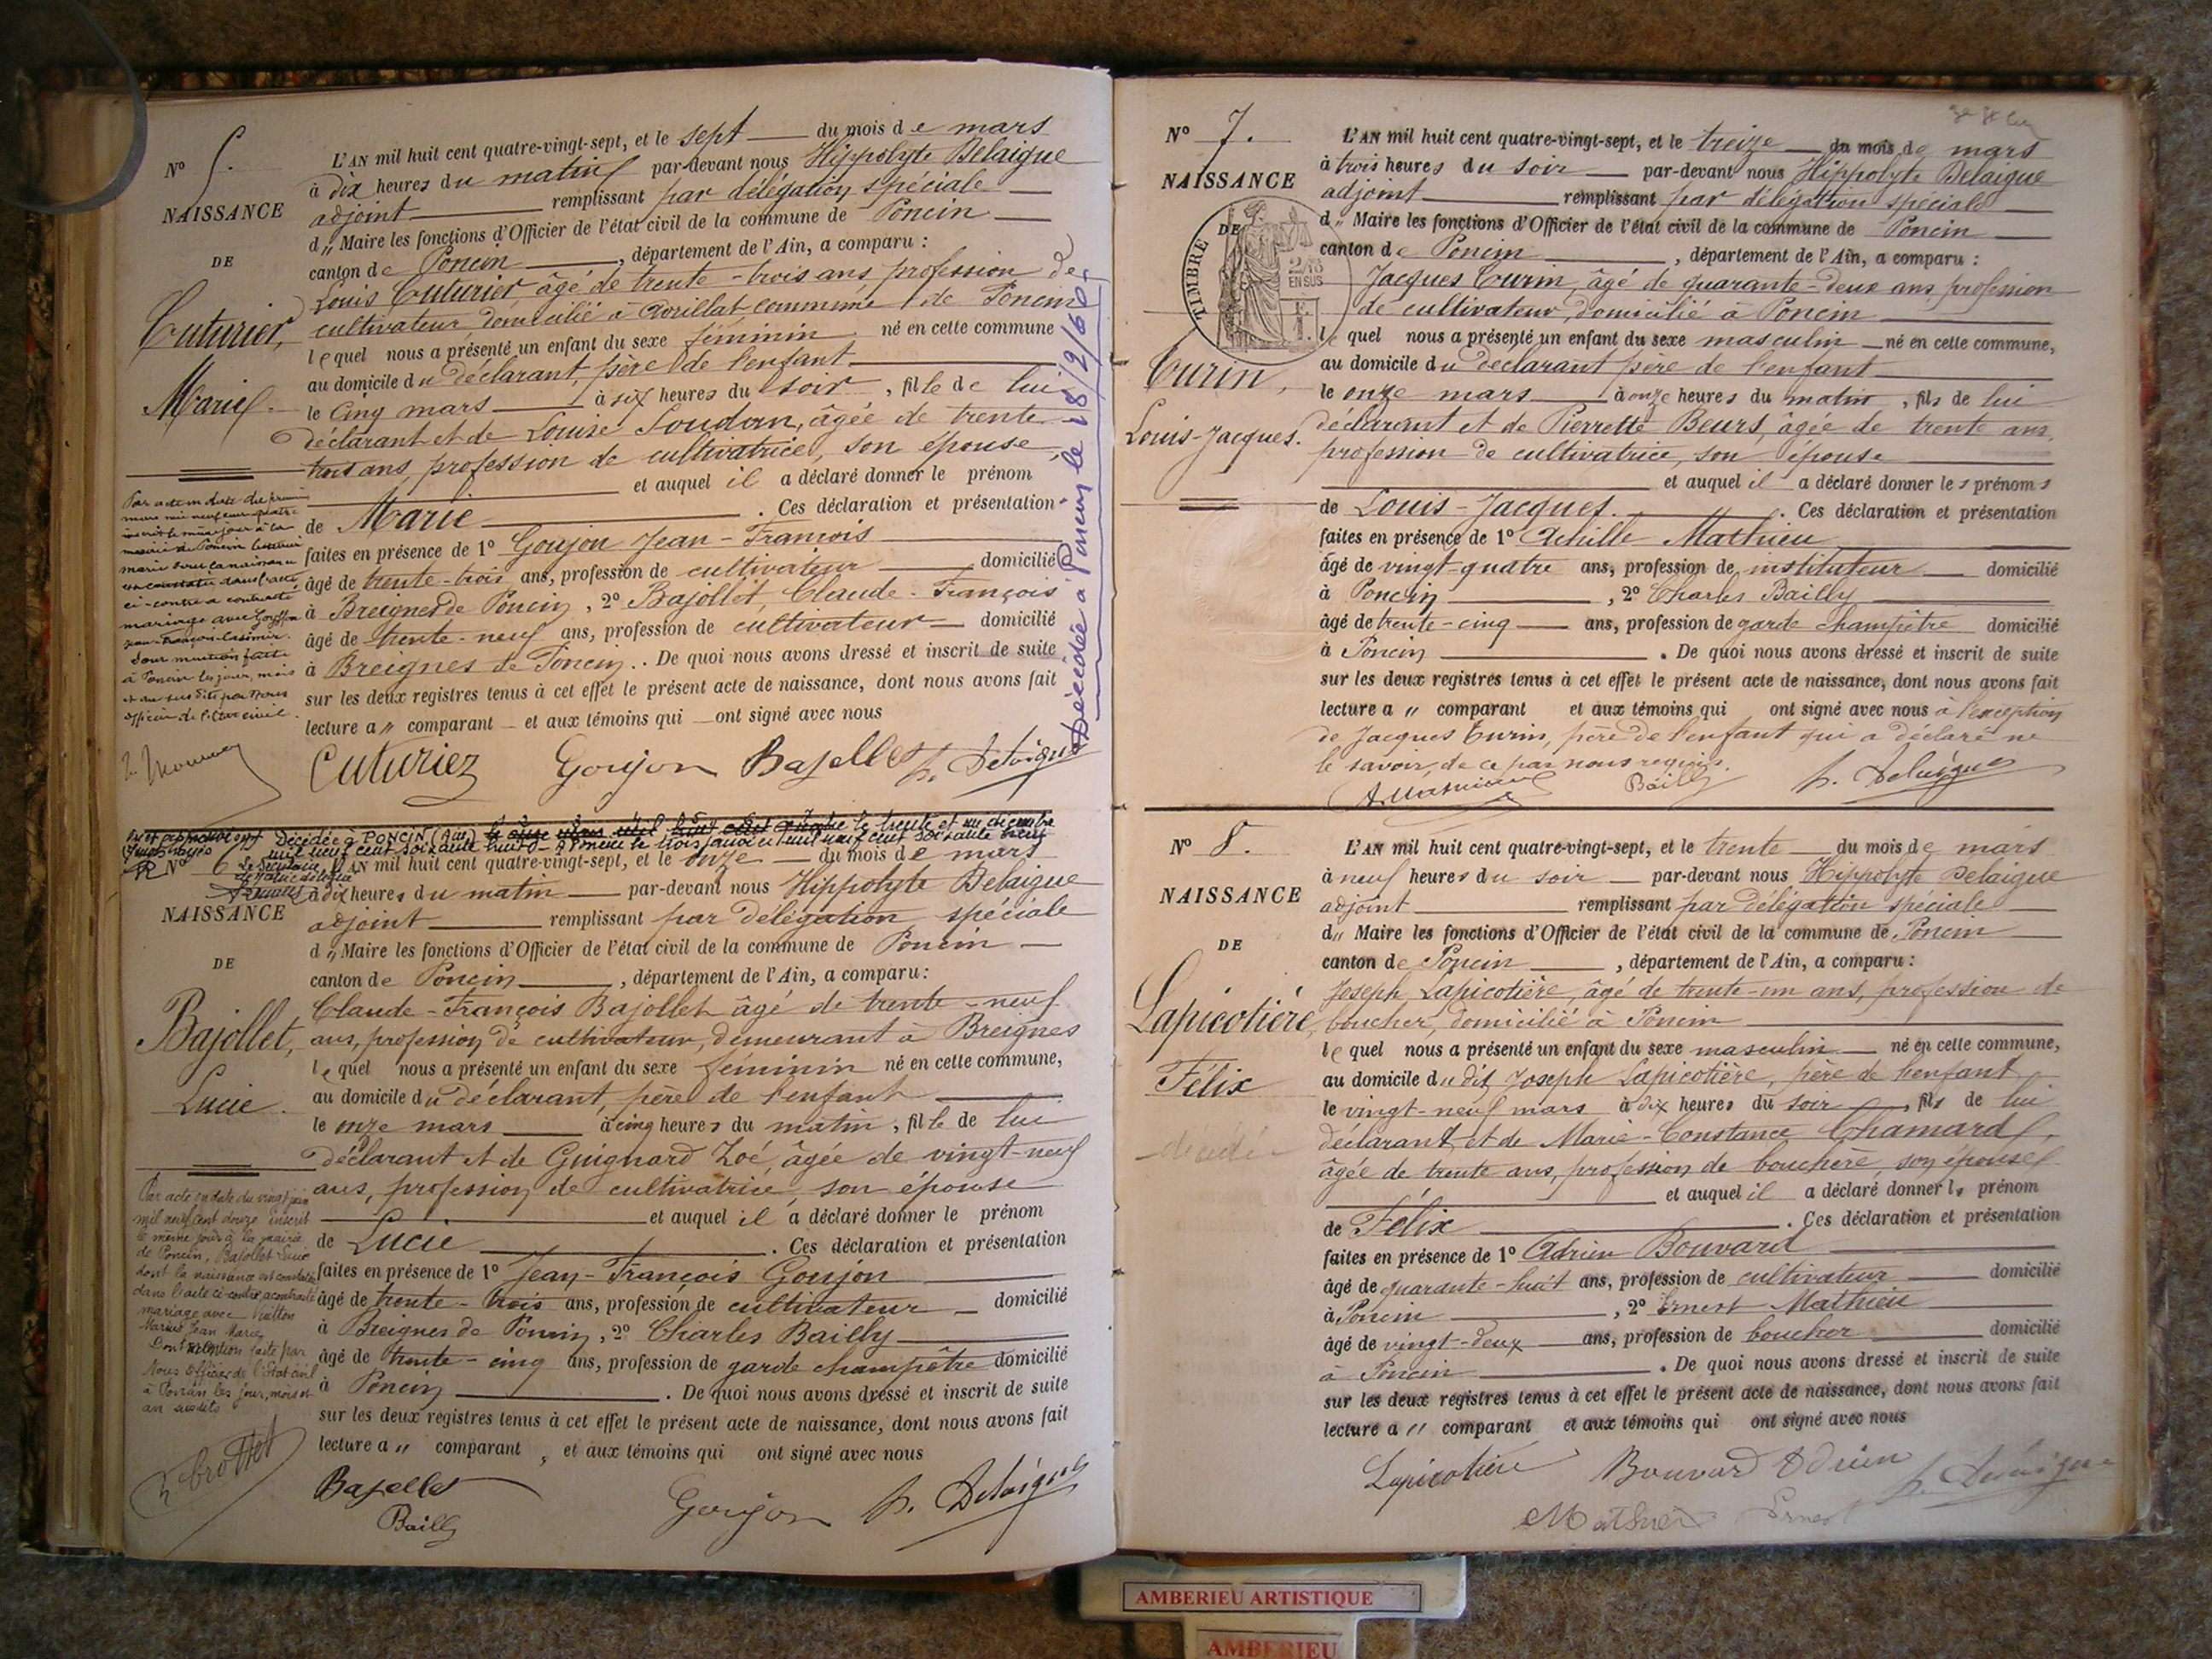 N° 5.
NAISSANCE
DE
Cuturier,
Marie.
L'AN mil huit cent quatre-vingt-sept, et le sept du mois de mars
à dix heures du matin par-devant nous Hippolyte Delaigue
adjoint remplissant par délégation spéciale
d " Maire les fonctions d'Officier de l'état civil de la commune de Poncin
canton de Poncin, département de l'Ain, a comparu :
Louis Cuturier, âgé de trente-trois ans, profession de
cultivateur domicilié à Avrillat commune de Poncin
lequel nous a présenté un enfant du sexe féminin né en cette commune
au domicile du déclarant, père de l'enfant
le cinq mars à six heures du soir, fille de lui
déclarant et de Louise Soudan, âgée de trente
trois ans, profession de cultivatrice, son épouse
et auquel il a déclaré donner le prénom
de Marie. Ces déclaration et présentation
faites en présence de 1° Goujon Jean-François
âgé de trente-trois ans, profession de cultivateur domicilié
à Breignes de Poncin, 2° Bajollet, Claude-François
âgé de trente-neuf ans, profession de cultivateur domicilié
à Breignes de Poncin. De quoi nous avons dressé et inscrit de suite
sur les deux registres tenus à cet effet le présent acte de naissance, dont nous avons fait
lecture a " comparant et aux témoins qui ont signé avec nous
Cuturiez Goujon Bajollet h. Delaigue
Par acte en date du premier
mars mil neuf cent quatre
inscrit le même jour à la
mairie de Poncin Cuturier
marie dont la naissance
est constatée dans l'acte
ci-contre a contracté
mariage avec
Jean-François-Casimir.
Dont mention faite
à Poncin les jour, mois
et an susdits par Nous
officier de l'état civil.
Décédée à Poncin le 18/2/60
Décédée à PONCIN (Ain) le onze mars mil huit cent quatre le trente et un décembre
mil neuf cent soixante huit - à Poncin le trois janvier mil neuf cent soixante neuf
Le Secrétaire
N° 6
NAISSANCE
DE
Bajollet,
Lucie.
L'AN mil huit cent quatre-vingt-sept, et le onze du mois de mars
à dix heures du matin par-devant nous Hippolyte Delaigue
adjoint remplissant par délégation spéciale
d " Maire les fonctions d'Officier de l'état civil de la commune de Poncin
canton de Poncin, département de l'Ain, a comparu :
Claude-François Bajollet âgé de trente-neuf
ans, profession de cultivateur, demeurant à Breignes
lequel nous a présenté un enfant du sexe féminin né en cette commune,
au domicile du déclarant, père de l'enfant
le onze mars à cinq heures du matin, fille de lui
déclarant et de Guignard Zoé, âgée de vingt-neuf
ans, profession de cultivatrice, son épouse
et auquel il a déclaré donner le prénom
de Lucie. Ces déclaration et présentation
faites en présence de 1° Jean-François Goujon
âgé de trente-trois ans, profession de cultivateur domicilié
à Breignes de Poncin, 2° Charles Bailly
âgé de trente-cinq ans, profession de garde champêtre domicilié
à Poncin. De quoi nous avons dressé et inscrit de suite
sur les deux registres tenus à cet effet le présent acte de naissance, dont nous avons fait
lecture a " comparant, et aux témoins qui ont signé avec nous
Bajollet Goujon h. Delaigue
Bailly
Par acte en date du vingt juin
mil neuf cent douze inscrit
le même jour à la mairie
de Poncin, Bajollet Lucie
dont la naissance est constatée
dans l'acte ci-contre, a contracté
mariage avec
Marius Jean Marie
Dont mention faite par
Nous Officier de l'Etat civil
à Poncin les jour, mois et
an susdits
N° 7.
NAISSANCE
DE
Turin,
Louis-Jacques.
TIMBRE
2/10 EN SUS
L'AN mil huit cent quatre-vingt-sept, et le treize du mois de mars
à trois heures du soir par-devant nous Hippolyte Delaigue
adjoint remplissant par délégation spéciale
d " Maire les fonctions d'Officier de l'état civil de la commune de Poncin
canton de Poncin, département de l'Ain, a comparu :
Jacques Turin, âgé de quarante-deux ans, profession
de cultivateur, domicilié à Poncin
lequel nous a présenté un enfant du sexe masculin né en cette commune,
au domicile du déclarant père de l'enfant
le onze mars à onze heures du matin, fils de lui
déclarant et de Pierrette Beurs, âgée de trente ans,
profession de cultivatrice, son épouse
et auquel il a déclaré donner les prénoms
de Louis-Jacques. Ces déclaration et présentation
faites en présence de 1° Achille Mathieu
âgé de vingt-quatre ans, profession de instituteur domicilié
à Poncin, 2° Charles Bailly
âgé de trente-cinq ans, profession de garde champêtre domicilié
à Poncin. De quoi nous avons dressé et inscrit de suite
sur les deux registres tenus à cet effet le présent acte de naissance, dont nous avons fait
lecture a " comparant et aux témoins qui ont signé avec nous à l'exception
de Jacques Turin, père de l'enfant qui a déclaré ne
le savoir, de ce par nous requis.
A. Mathieu Bailly h. Delaigue
N° 8.
NAISSANCE
DE
Lapicotière,
Félix
décédé
L'AN mil huit cent quatre-vingt-sept, et le trente du mois de mars
à neuf heures du soir par-devant nous Hippolyte Delaigue
adjoint remplissant par délégation spéciale
d " Maire les fonctions d'Officier de l'état civil de la commune de Poncin
canton de Poncin, département de l'Ain, a comparu :
Joseph Lapicotière, âgé de trente-un ans, profession de
boucher, domicilié à Poncin
lequel nous a présenté un enfant du sexe masculin né en cette commune,
au domicile du dit Joseph Lapicotière, père de l'enfant
le vingt-neuf mars à dix heures du soir, fils de lui
déclarant et de Marie-Constance Chamard,
âgée de trente ans, profession de bouchère, son épouse
et auquel il a déclaré donner le prénom
de Félix. Ces déclaration et présentation
faites en présence de 1° Adrien Bouvard
âgé de quarante-huit ans, profession de cultivateur domicilié
à Poncin, 2° Ernest Mathieu
âgé de vingt-deux ans, profession de boucher domicilié
à Poncin. De quoi nous avons dressé et inscrit de suite
sur les deux registres tenus à cet effet le présent acte de naissance, dont nous avons fait
lecture a " comparant et aux témoins qui ont signé avec nous
Lapicotière Bouvard Adrien h. Delaigue
Mathieu Ernest
AMBERIEU ARTISTIQUE
AMBERIEU